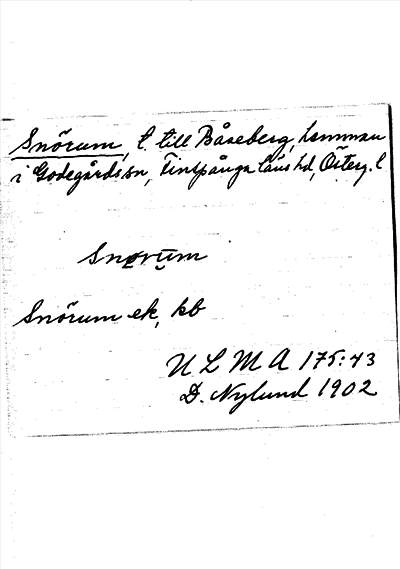 Snörum, t. till Båseberg, hemman
i Godegårds sn, Finspånga läns hd, Österg. l
Snørūm
Snörum ek, kb
U L M A 175:43
D. Nylund 1902